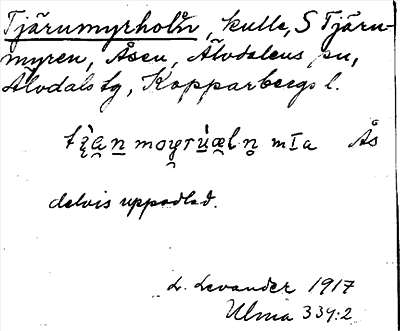 Tjärumyrholn, kulle, S Tjäru-
myren, Åsen, Älvdalens sn,
Älvdals tg, Kopparbergs l.
Ås
delvis uppodlad.
L. Levander 1917
Ulma 339:2